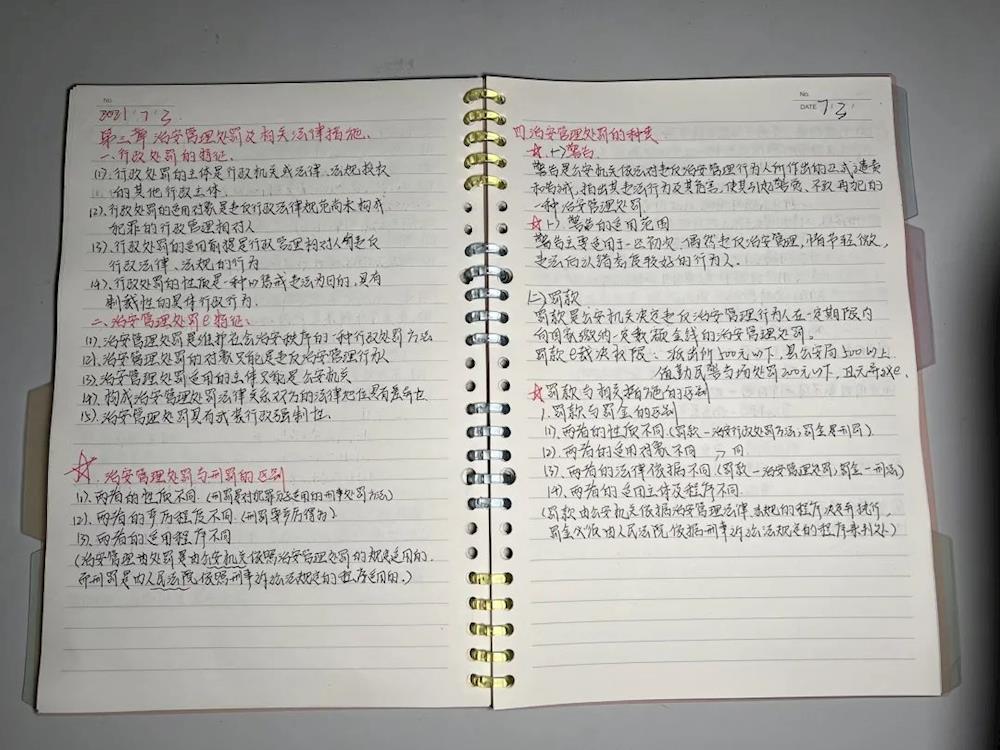 No.
2021 7 3.
第三章 治安管理处罚及相关法律措施、
一、行政处罚的特征、
(1). 行政处罚的主体是行政机关或法律、法规授权
的其他行政主体、
(2). 行政处罚的适用对象是违反行政法律规范尚未构成
犯罪的行政管理相对人
(3). 行政处罚的适用前提是行政管理相对人有违反
行政法律、法规的行为
(4). 行政处罚的性质是一种以惩戒违法为目的,具有
制裁性的具体行政行为.
二、治安管理处罚e特征:
(1). 治安管理处罚是维护社会治安秩序的一种行政处罚方法
(2). 治安管理处罚的对象只能是违反治安管理行为人
(3). 治安管理处罚适用的主体只能是公安机关
(4). 构成治安管理处罚法律关系双方的法律地位具有差异性
(5). 治安管理处罚具有武装行政强制性.
☆. 治安管理处罚与刑罚的区别
(1). 两者的性质不同. (刑罚是对犯罪分子适用的刑事处罚方法)
(2). 两者的严厉程度不同. (刑罚要严厉得多)
(3). 两者的适用程序不同
(治安管理处罚是由公安机关依照治安管理处罚的规定适用的.
而刑罚是由人民法院依照刑事诉讼法规定的程序适用的.)
No.
DATE 7 3
四 治安管理处罚的种类
☆. (一) 警告
警告是公安机关依法对违反治安管理行为人所作出的正式谴责
和告诫,指出其违法行为及其危害,使其引起警觉、不致再犯的
一种治安管理处罚
☆ (一). 警告的适用范围
警告主要适用于一些初次、偶然违反治安管理,情节轻微,
违法后认错态度较好的行为人.
(二) 罚款
罚款是公安机关决定违反治安管理行为人在一定期限内
向国家缴纳一定数额金钱的治安管理处罚。
罚款e裁决权限: 派出所500元以下,县公安局500以上
值勤民警当场处罚200元以下,且无异议e.
☆ 罚款与相关措施的区别
1. 罚款与罚金的区别
(1). 两者的性质不同. (罚款一治安行政处罚方法,罚金是刑罚).
(2). 两者的适用对象不同
(3). 两者的法律依据不同 (罚款一治安管理处罚,罚金一刑法)
(4). 两者的适用主体及程序不同.
(罚款由公安机关依据治安管理法律、法规的程序决定并执行.
罚金必须由人民法院依据刑事诉讼法规定的程序来判处.)